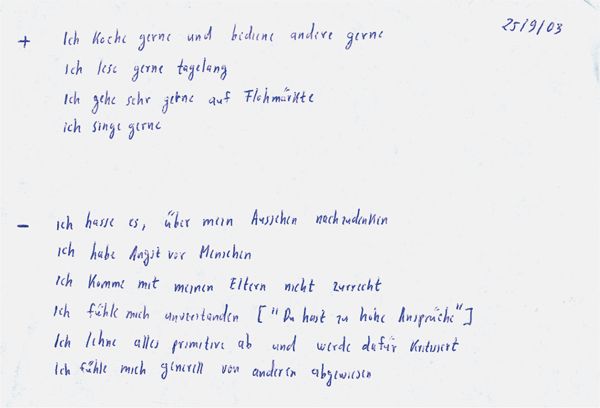 25/9/03
+ Ich Koche gerne und bediene andere gerne
Ich lese gerne tagelang
Ich gehe sehr gerne auf Flohmärkte
ich singe gerne
- Ich hasse es, über mein Aussehen nachzudenken
Ich habe Angst vor Menschen
Ich Komme mit meinen Eltern nicht zurecht
Ich fühle mich unverstanden ["Du hast zu hohe Ansprüche"]
Ich lehne alles primitive ab und werde dafür kritisiert
Ich fühle mich generell von anderen abgewiesen